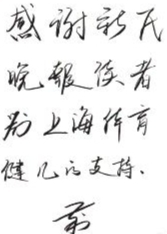 感谢新民
晚报读者
对上海体育
健儿的支持.